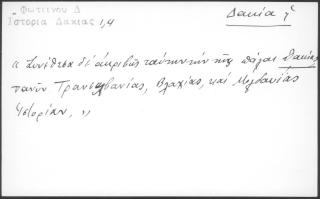 Φωτεινού Δ
Ἱστορία Δακίας 1,4
Δακία ἡ
« Συνέθεσα δὲ ἀκριβῶς ταύτην τὴν τῆς πάλαι Δακίας
τανῦν Τρανσυλβανίας, Βλαχίας, καὶ Μολδανίας
Ἱστορίαν, »